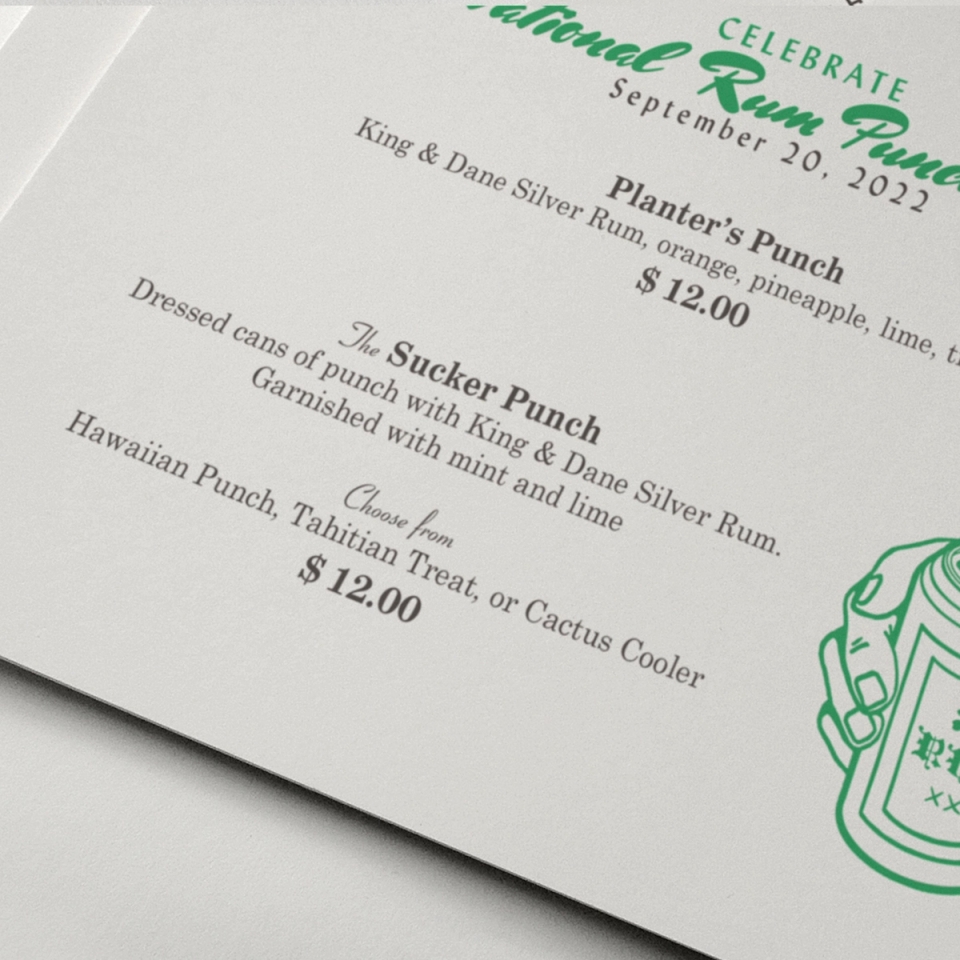 CELEBRATE
National Rum Punch
September 20, 2022
Planter's Punch
King & Dane Silver Rum, orange, pineapple, lime,
$12.00
The Sucker Punch
Dressed cans of punch with King & Dane Silver Rum.
Garnished with mint and lime
Choose from
Hawaiian Punch, Tahitian Treat, or Cactus Cooler
$12.00